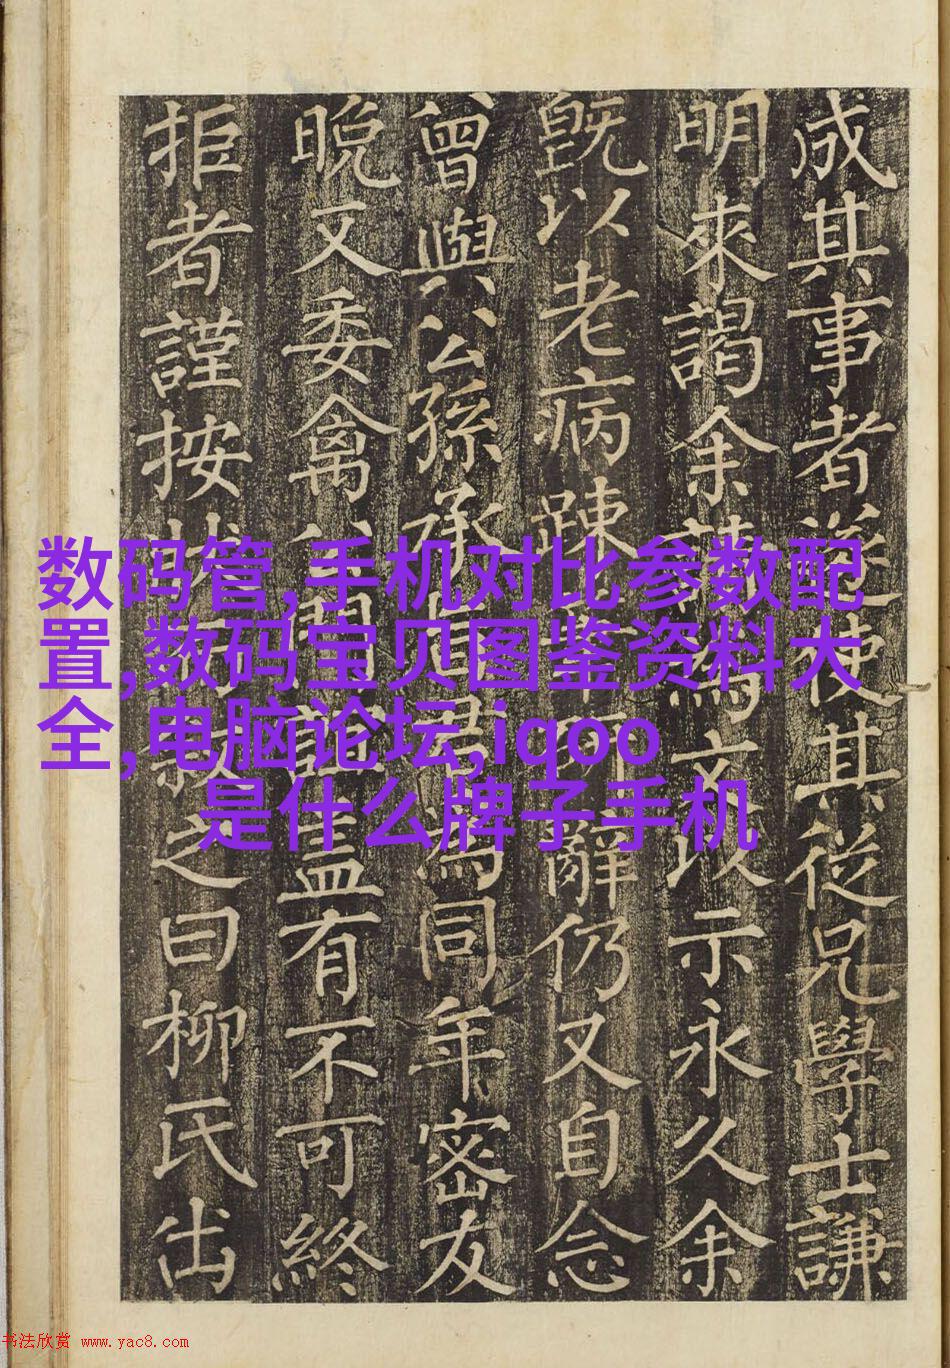 成其事者遂使其從兄學士謙
明來謁余請為文以示永久余
既以老病踈可辭仍又自念
曾與公孫承為同年密友
晚又委禽誼盖有不可終
拒者謹按叙之曰柳氏出
数码管,手机对比参数配
置,数码宝贝图鉴资料大
全,电脑论坛,iqoo
是什么牌子手机
书法欣赏 www.yac8.com